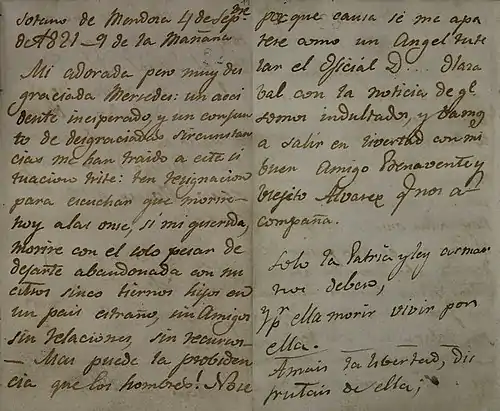 Sotano de Mendosa 4 de Sepbre
de 1821 9 de la Mañana
Mi adorada pero muy des
graciada Mersedes: un acci
dente inesperado, y un conjun
to de desgraciadas sircunstan
cias me han traido a esta si
tuacion triste: ten resignacion
para escuchar que morire
hoy a las onse, si mi querida,
morire con el solo pesar de
dejarte abandonada con nu
estros sinco tiernos hijos en
un pais estraño, sin Amigos
sin relaciones, sin recursos
— Mas puede la probiden
cia que los hombres! No se
por que causa se me apa
rese como un Angel tute
lar el Oficial D... Olaza
val con la noticia de qe
somos indultados, y vamos
a salir en livertad con mi
buen Amigo Benavente y
viejito Alvarez q nos a
compaña.
Solo la Patria y ley
nos debero,
y pr ella morir vivir por
ella.
Amais la libertad, dis
frutais de ella;